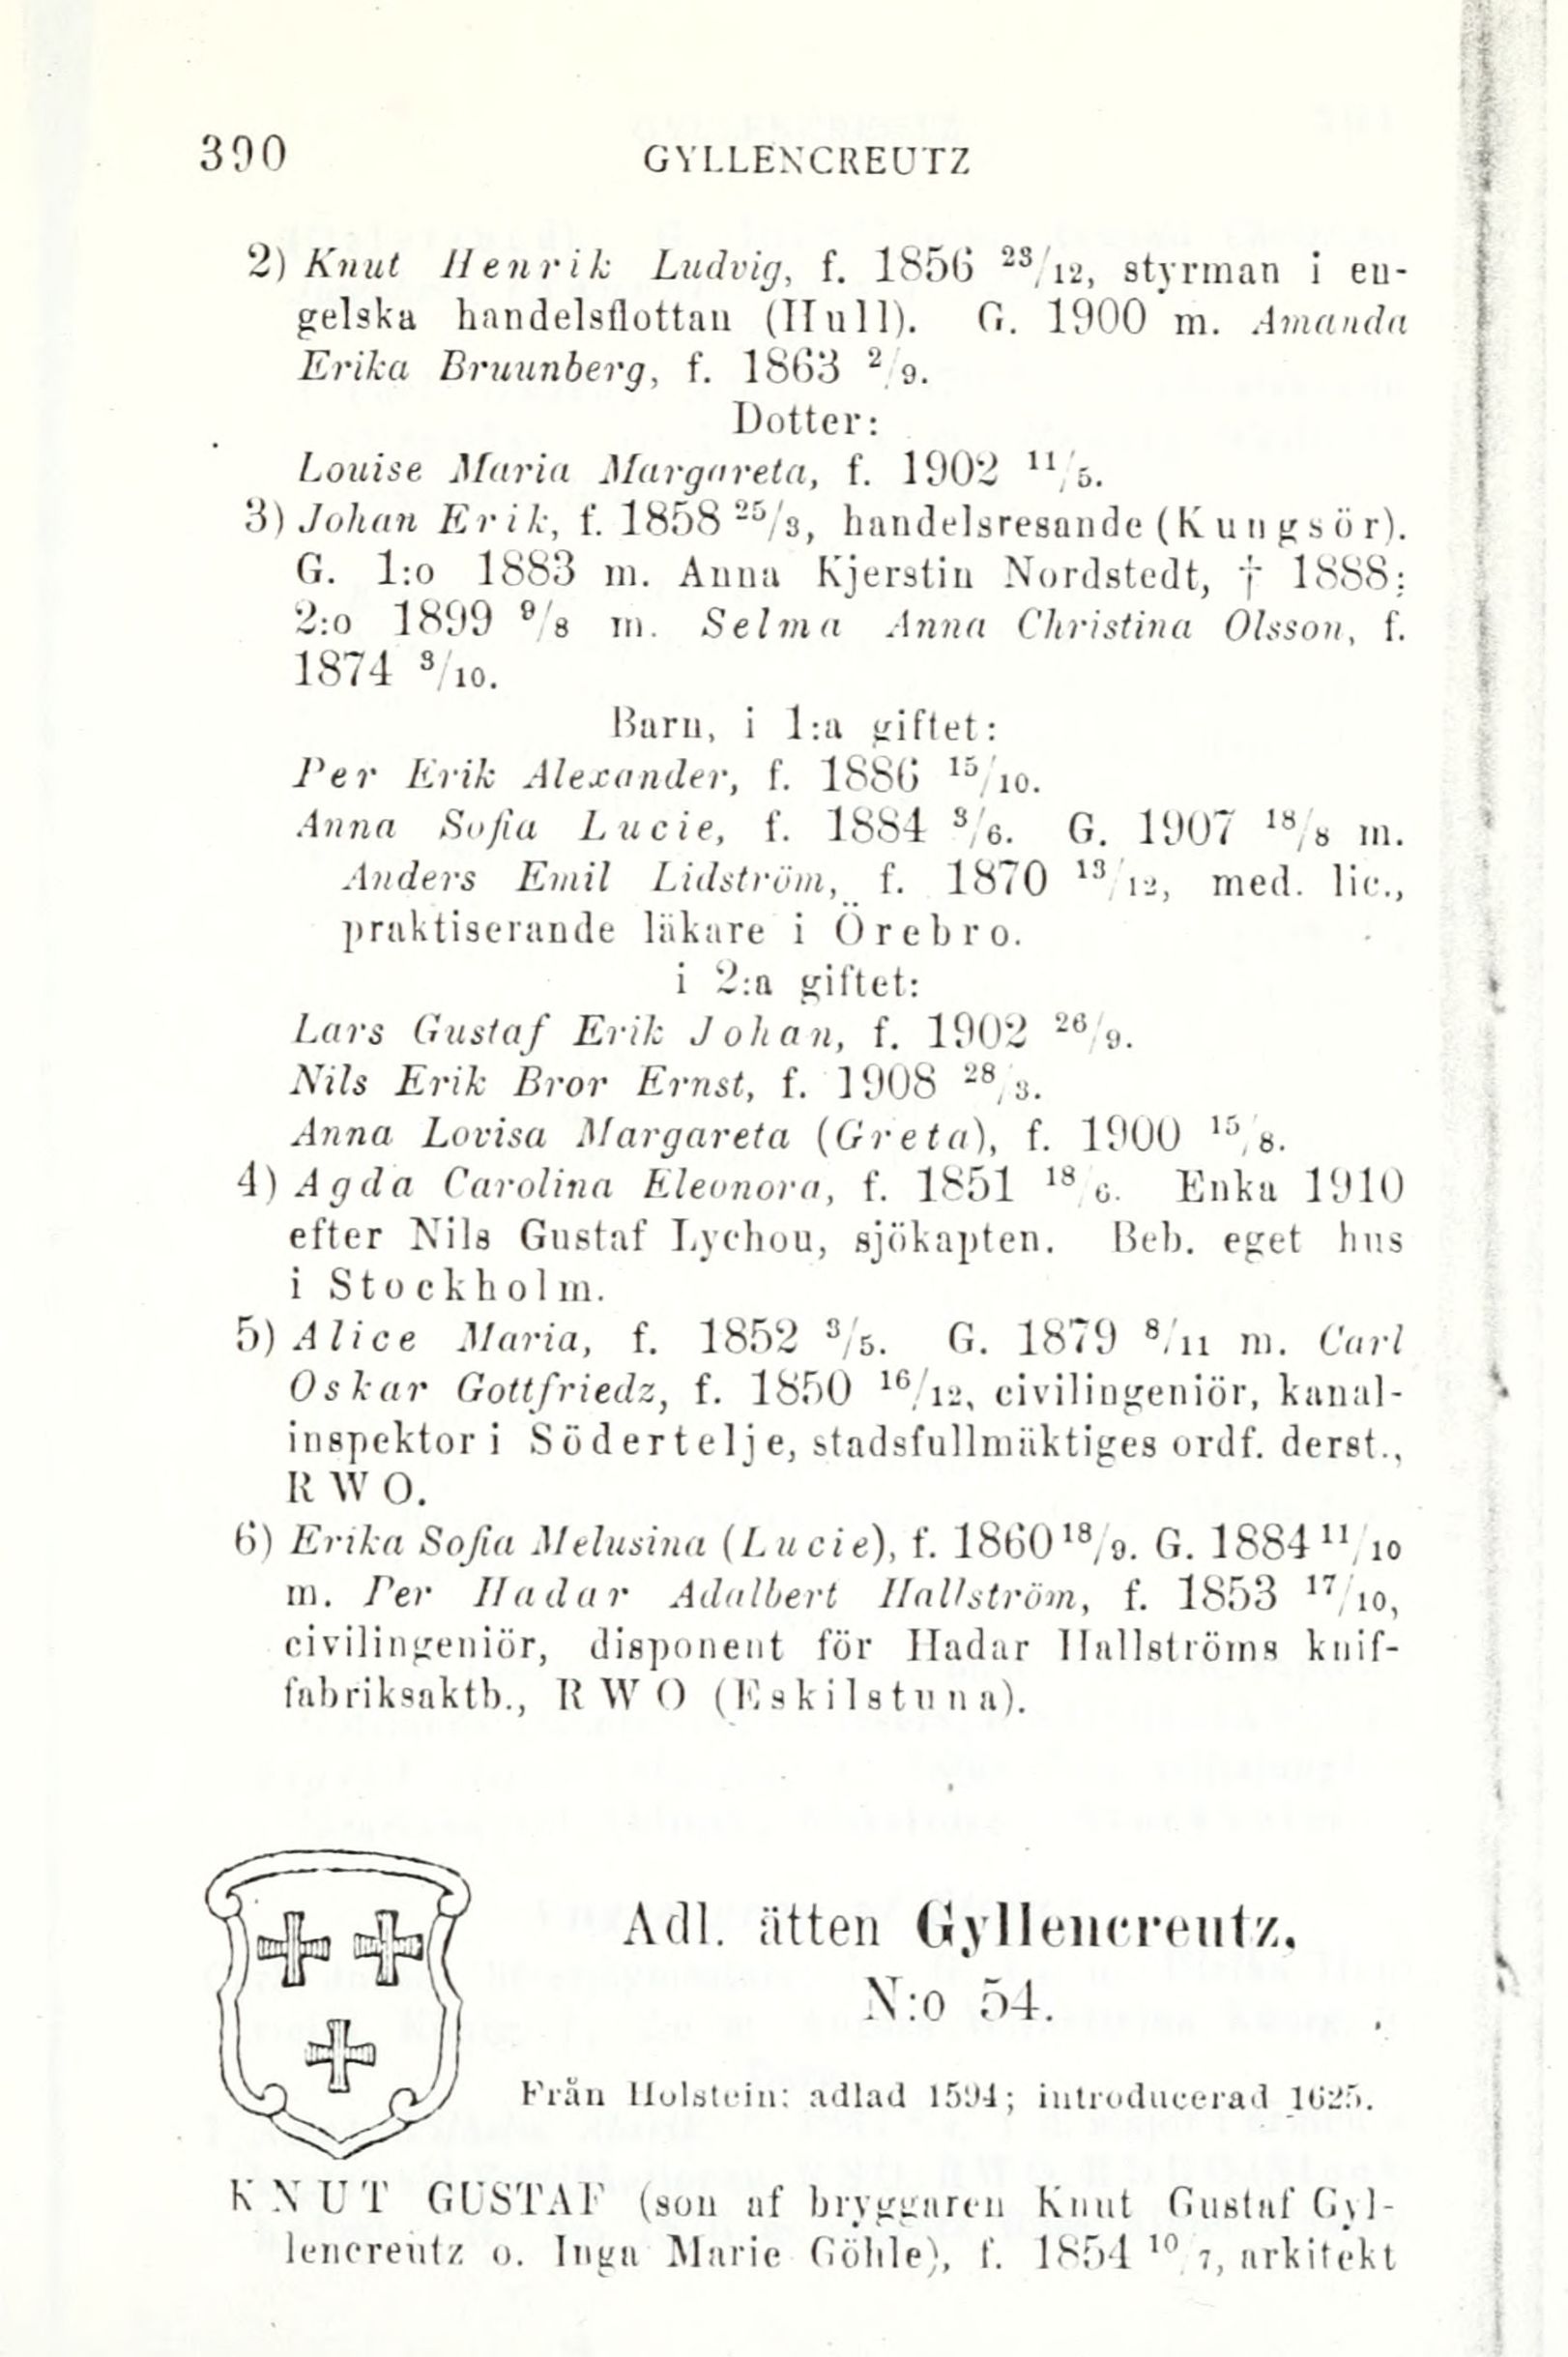 390
GYLLENCREUTZ
2) Knut Henrik Ludvig, f. 1856 23/12, styrman i en-
gelska handelsflottan (Hull). G. 1900 m. Amanda
Erika Bruunberg, f. 1863 2/9.
Dotter:
Louise Maria Margareta, f. 1902 11/5.
3) Johan Erik, f. 1858 25/3, handelsresande (Kungsör).
G. 1:o 1883 m. Anna Kjerstin Nordstedt, † 1888;
2:o 1899 9/8 m. Selma Anna Christina Olsson, f.
1874 3/10.
Barn, i 1:a giftet:
Per Erik Alexander, f. 1886 15/10.
Anna Sofia Lucie, f. 1884 3/6. G. 1907 18/8 m.
Anders Emil Lidström, f. 1870 13/12, med. lic.,
praktiserande läkare i Örebro.
i 2:a giftet:
Lars Gustaf Erik Johan, f. 1902 26/9.
Nils Erik Bror Ernst, f. 1908 28/3.
Anna Lovisa Margareta (Greta), f. 1900 15/8.
4) Agda Carolina Eleonora, f. 1851 18/6. Enka 1910
efter Nils Gustaf Lychou, sjökapten. Beb. eget hus
i Stockholm.
5) Alice Maria, f. 1852 3/5. G. 1879 8/11 m. Carl
Oskar Gottfriedz, f. 1850 16/12, civilingeniör, kanal-
inspektor i Södertelje, stadsfullmäktiges ordf. derst.,
R W O.
6) Erika Sofia Melusina (Lucie), f. 1860 18/9. G. 1884 11/10
m. Per Hadar Adalbert Hallström, f. 1853 17/10,
civilingeniör, disponent för Hadar Hallströms knif-
fabriksaktb., R W O (Eskilstuna).
Adl. ätten Gyllencreutz.
N:o 54.
Från Holstein; adlad 1594; introducerad 1625.
KNUT GUSTAF (son af bryggaren Knut Gustaf Gyl-
lencreutz o. Inga Marie Göhle), f. 1854 10/7, arkitekt